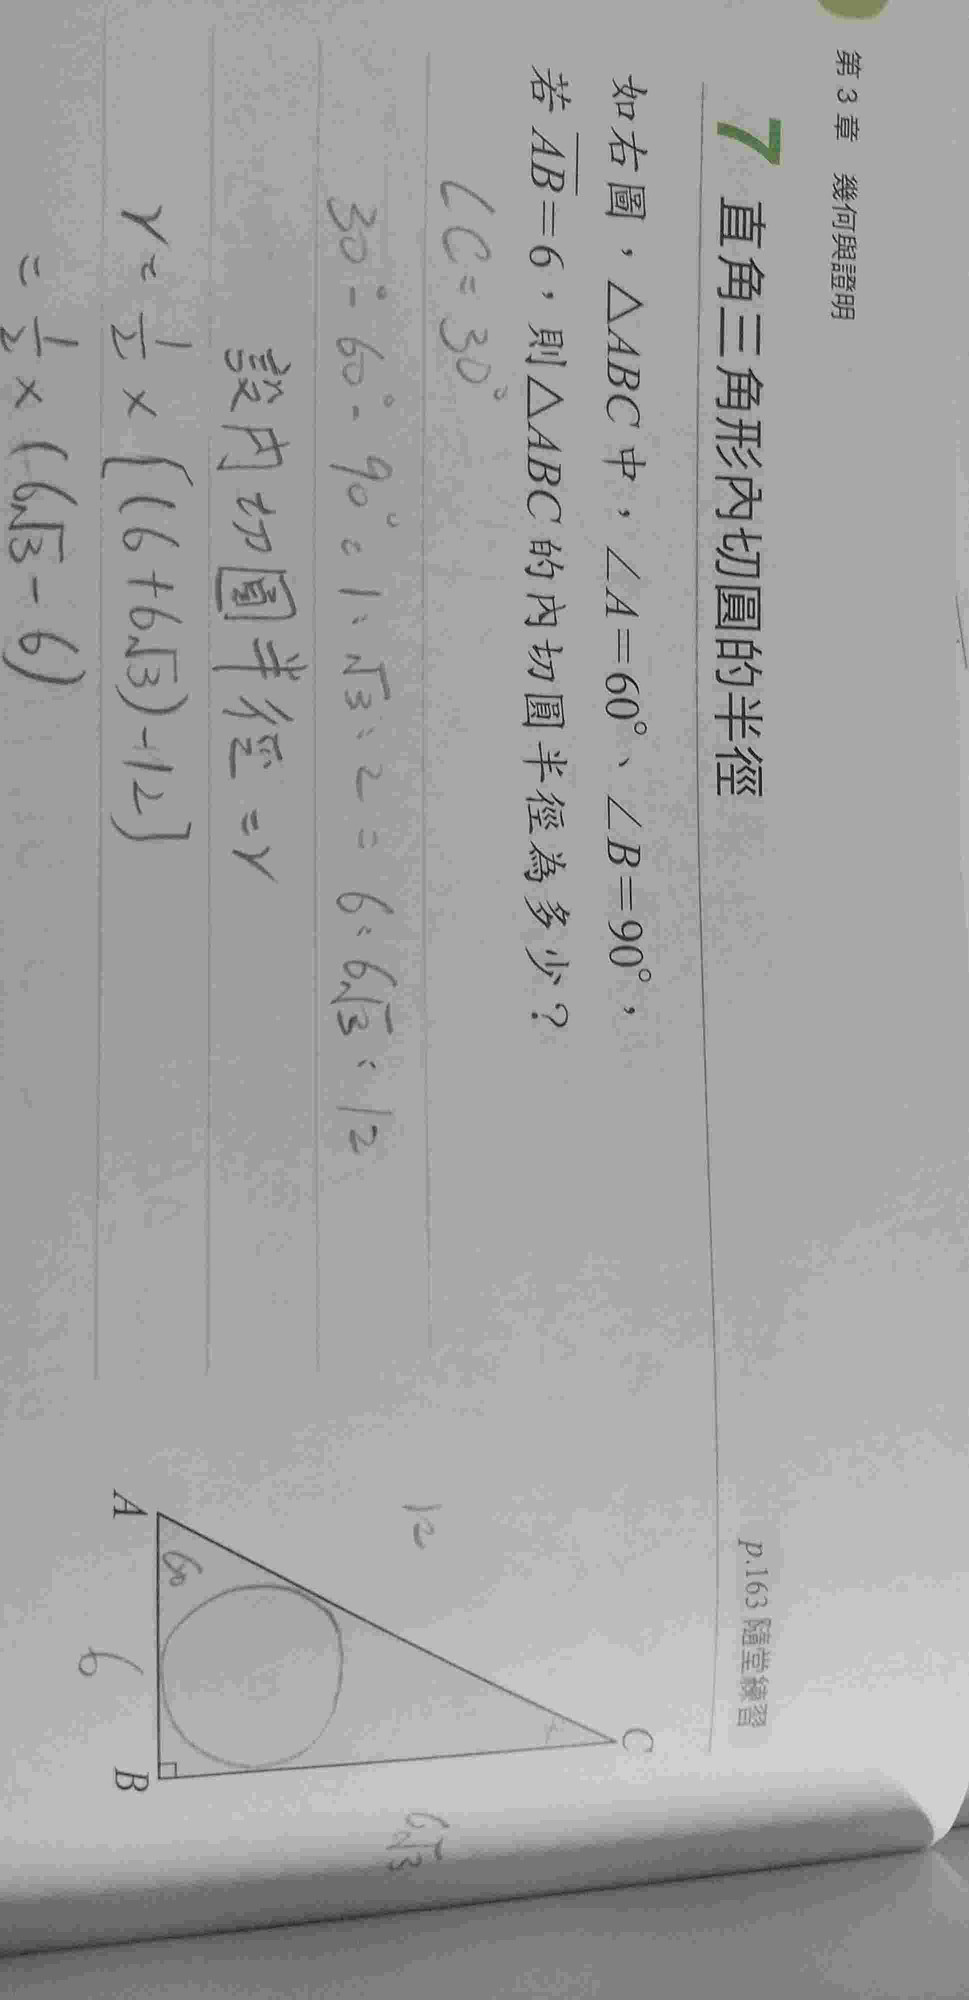 第 3 章 幾何與證明
7 直角三角形內切圓的半徑
p.163 隨堂練習
如右圖，△ABC 中，∠A＝60°、∠B＝90°，
若 AB＝6，則△ABC 的內切圓半徑為多少？
∠C = 30°
30° : 60° : 90° = 1 : √3 : 2 = 6 : 6√3 : 12
設內切圓半徑 = r
r = 1/2 × [(6 + 6√3) - 12]
= 1/2 × (6√3 - 6)
C
12
6√3
60
A
B
6